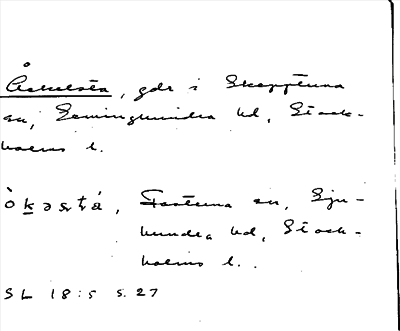 Åskelsta, gdr i Skepptuna
sn, Seminghundra hd, Stock-
holms l.
òkǝstá, Fasterna sn, Sju-
hundra hd, Stock-
holms l.
SL 18:5 s. 27